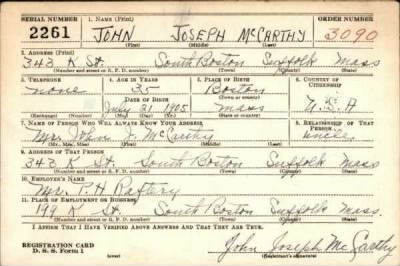 SERIAL NUMBER 1. NAME (Print) ORDER NUMBER
2261 JOHN JOSEPH McCARTHY 3090
(First) (Middle) (Last)
2. ADDRESS (Print)
343 K St. South Boston Suffolk Mass
(Number and street or R. F. D. number) (Town) (County) (State)
3. TELEPHONE 4. AGE IN YEARS 5. PLACE OF BIRTH 6. COUNTRY OF CITIZENSHIP
none 35 Boston
DATE OF BIRTH (Town or county)
July 21 1905 Mass U.S.A
(Exchange) (Number) (Mo.) (Day) (Yr.) (State or country)
7. NAME OF PERSON WHO WILL ALWAYS KNOW YOUR ADDRESS 8. RELATIONSHIP OF THAT PERSON
Mrs. John J. McCarthy
(Mr., Mrs., Miss) (First) (Middle) (Last)
9. ADDRESS OF THAT PERSON
343 K St. South Boston Suffolk Mass
(Number and street or R. F. D. number) (Town) (County) (State)
10. EMPLOYER'S NAME
Mr. P. H Raftery
11. PLACE OF EMPLOYMENT OR BUSINESS
199 K St South Boston Suffolk Mass.
(Number and street or R. F. D. number) (Town) (County) (State)
I AFFIRM THAT I HAVE VERIFIED ABOVE ANSWERS AND THAT THEY ARE TRUE.
REGISTRATION CARD
D. S. S. Form 1 (over) John Joseph McCarthy
(Registrant's signature)